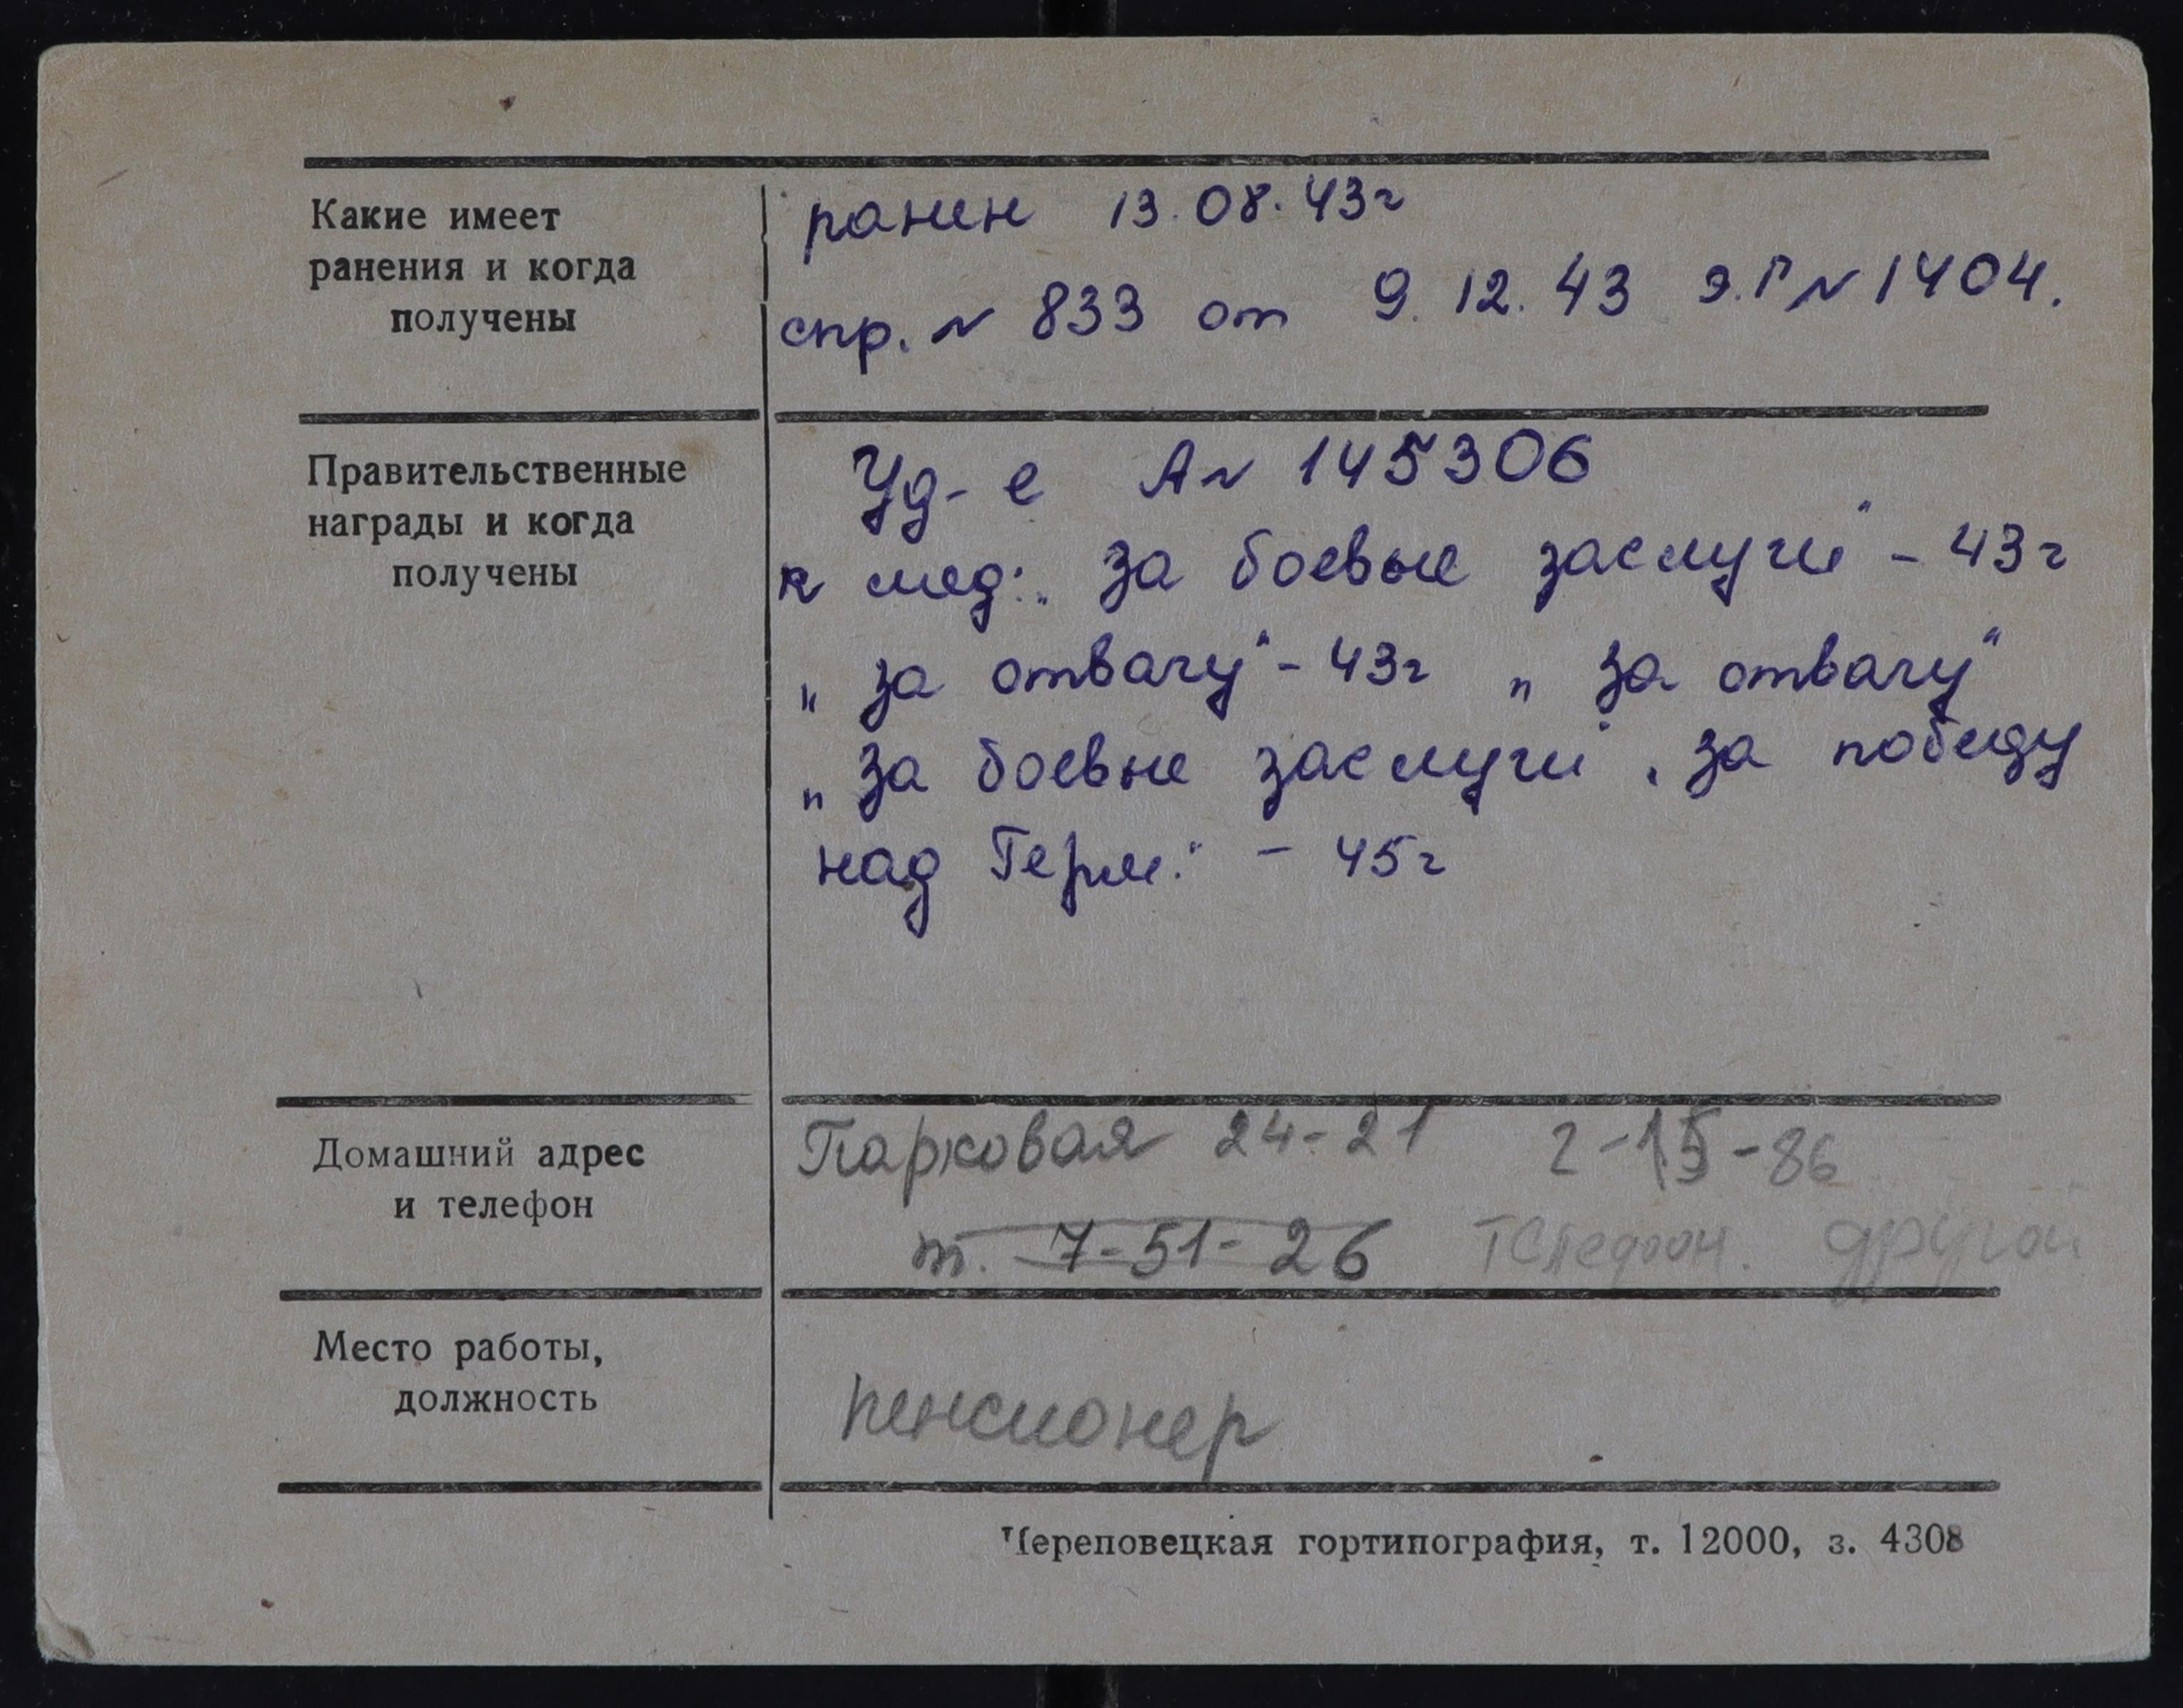 Какие имеет
ранения и когда
получены
ранен 13.08.43г
спр. N 833 от 9.12.43 э.Г N 1404.
Правительственные
награды и когда
получены
Уд-е А N 145306
к мед: „За боевые заслуги" - 43г
„За отвагу" - 43г „За отвагу"
„За боевые заслуги" „За победу
над Герм." - 45г
Домашний адрес
и телефон
Парковая 24-21 2-15-86
т. 7-51-26 Телефон. другой
Место работы,
должность
пенсионер
Череповецкая гортипография, т. 12000, з. 4308